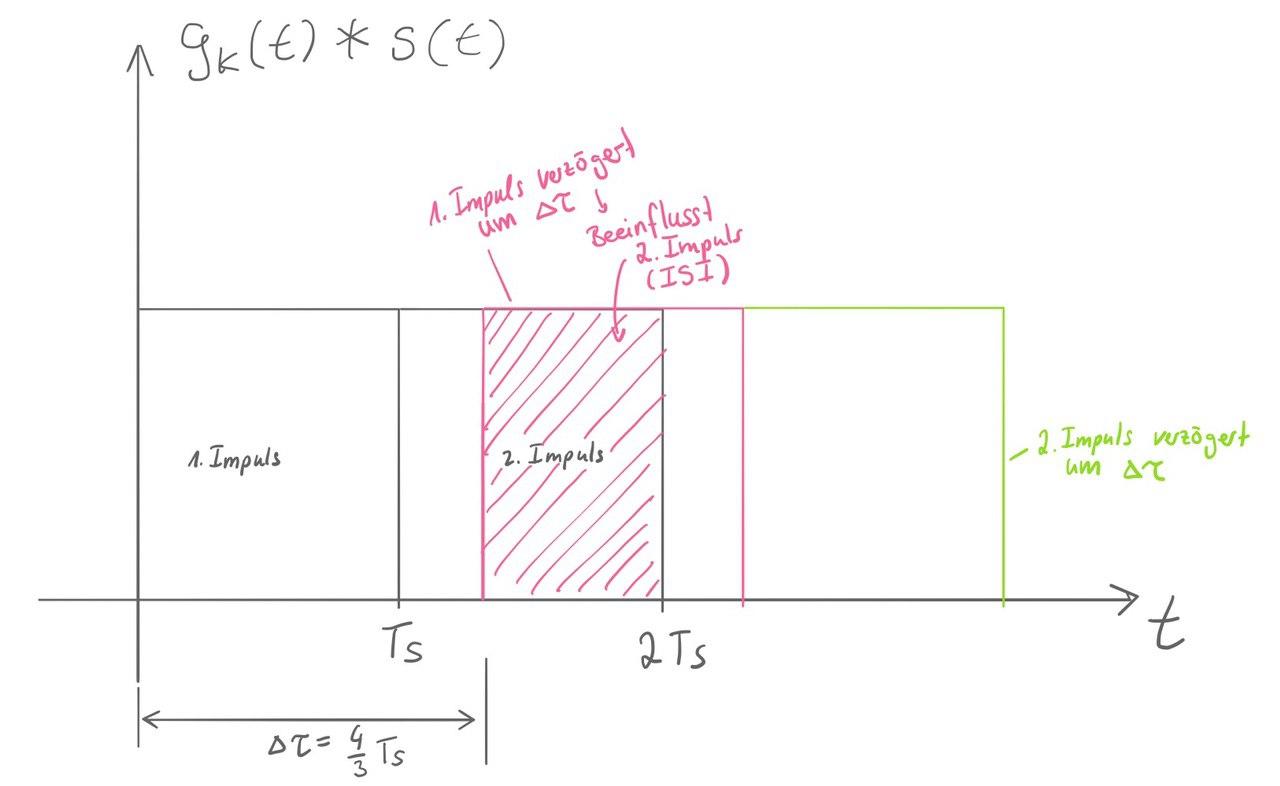 g_K(t) * s(t)
1. Impuls verzögert
um Δτ
Beeinflusst
2. Impuls
(ISI)
1. Impuls
2. Impuls
2. Impuls verzögert
um Δτ
Ts
2Ts
t
Δτ = 4/3 Ts